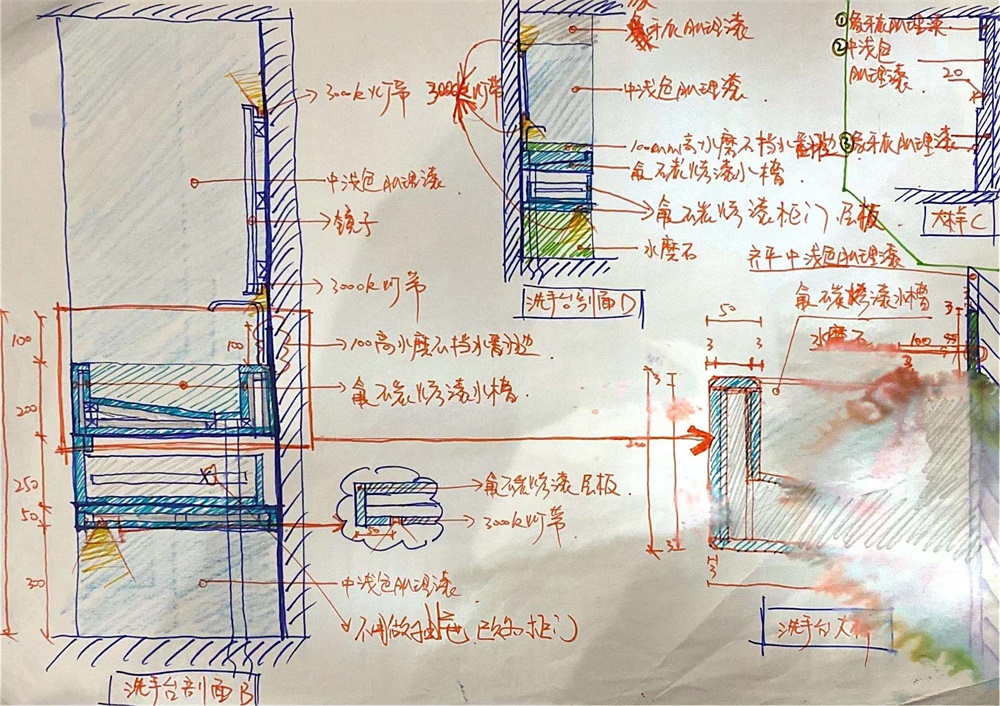 3000k灯带
中浅色肌理漆
镜子
3000k灯带
100高水磨石挡水翻边
氟碳烤漆水槽
氟碳烤漆层板
3000k灯带
中浅色肌理漆
不用做抽屉
柜门
100
200
250
50
300
100
50
洗手台剖面B
3000k灯带
象牙灰肌理漆
中浅色肌理漆
100mm高水磨石挡水翻边
氟碳烤漆水槽
氟碳烤漆柜门.层板
水磨石
洗手台剖面D
①象牙灰肌理漆
②中浅色
肌理漆
20
③象牙灰肌理漆
大样C
齐平中浅色肌理漆
氟碳烤漆水槽
水磨石
50
3
3
3
100
3
3
200
3
3
洗手台大